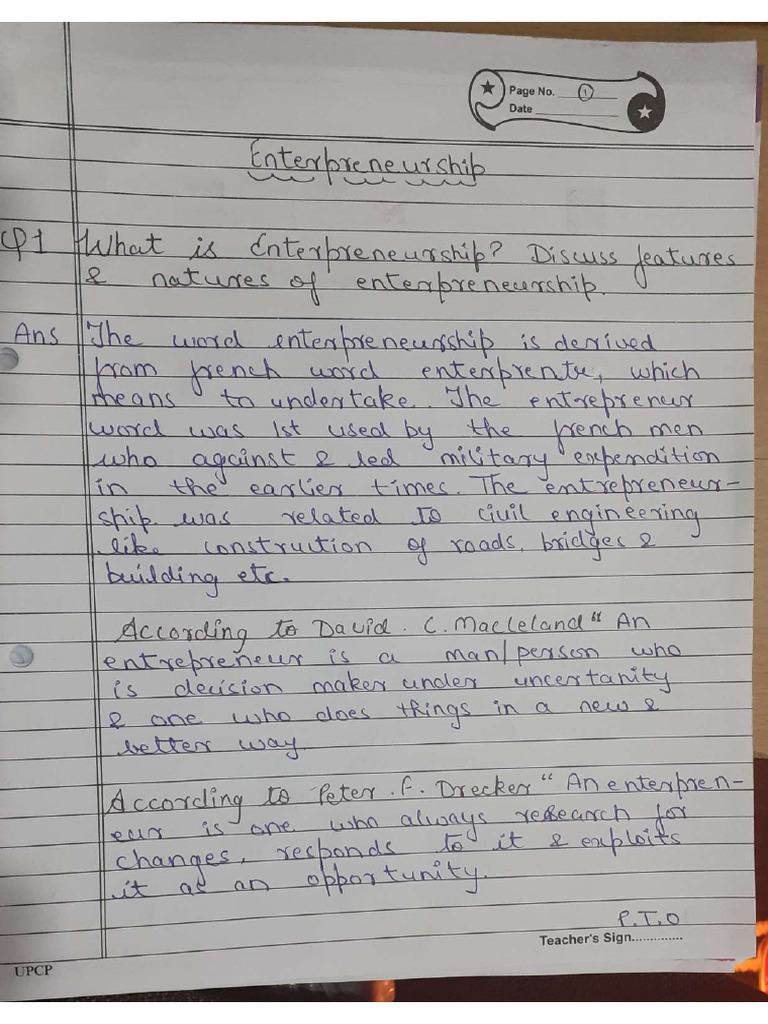 Page No. 1
Date
Enterpreneurship
Q1 What is Enterpreneurship? Discuss features
& natures of enterpreneurship.
Ans The word enterpreneurship is derived
from french word enterprentre, which
means to undertake. The entrepreneur
word was 1st used by the french men
who against & led military expendition
in the earlier times. The entrepreneur-
ship was related to civil engineering
like construction of roads, bridges &
building etc.
According to David. C. Macleland " An
entrepreneur is a man/person who
is decision maker under uncertanity
& one who does things in a new &
better way
According to Peter. F. Drecker " An enterpren-
eur is one who always research for
changes, responds to it & exploits
it as an opportunity.
P.T.O
Teacher's Sign.............
UPCP